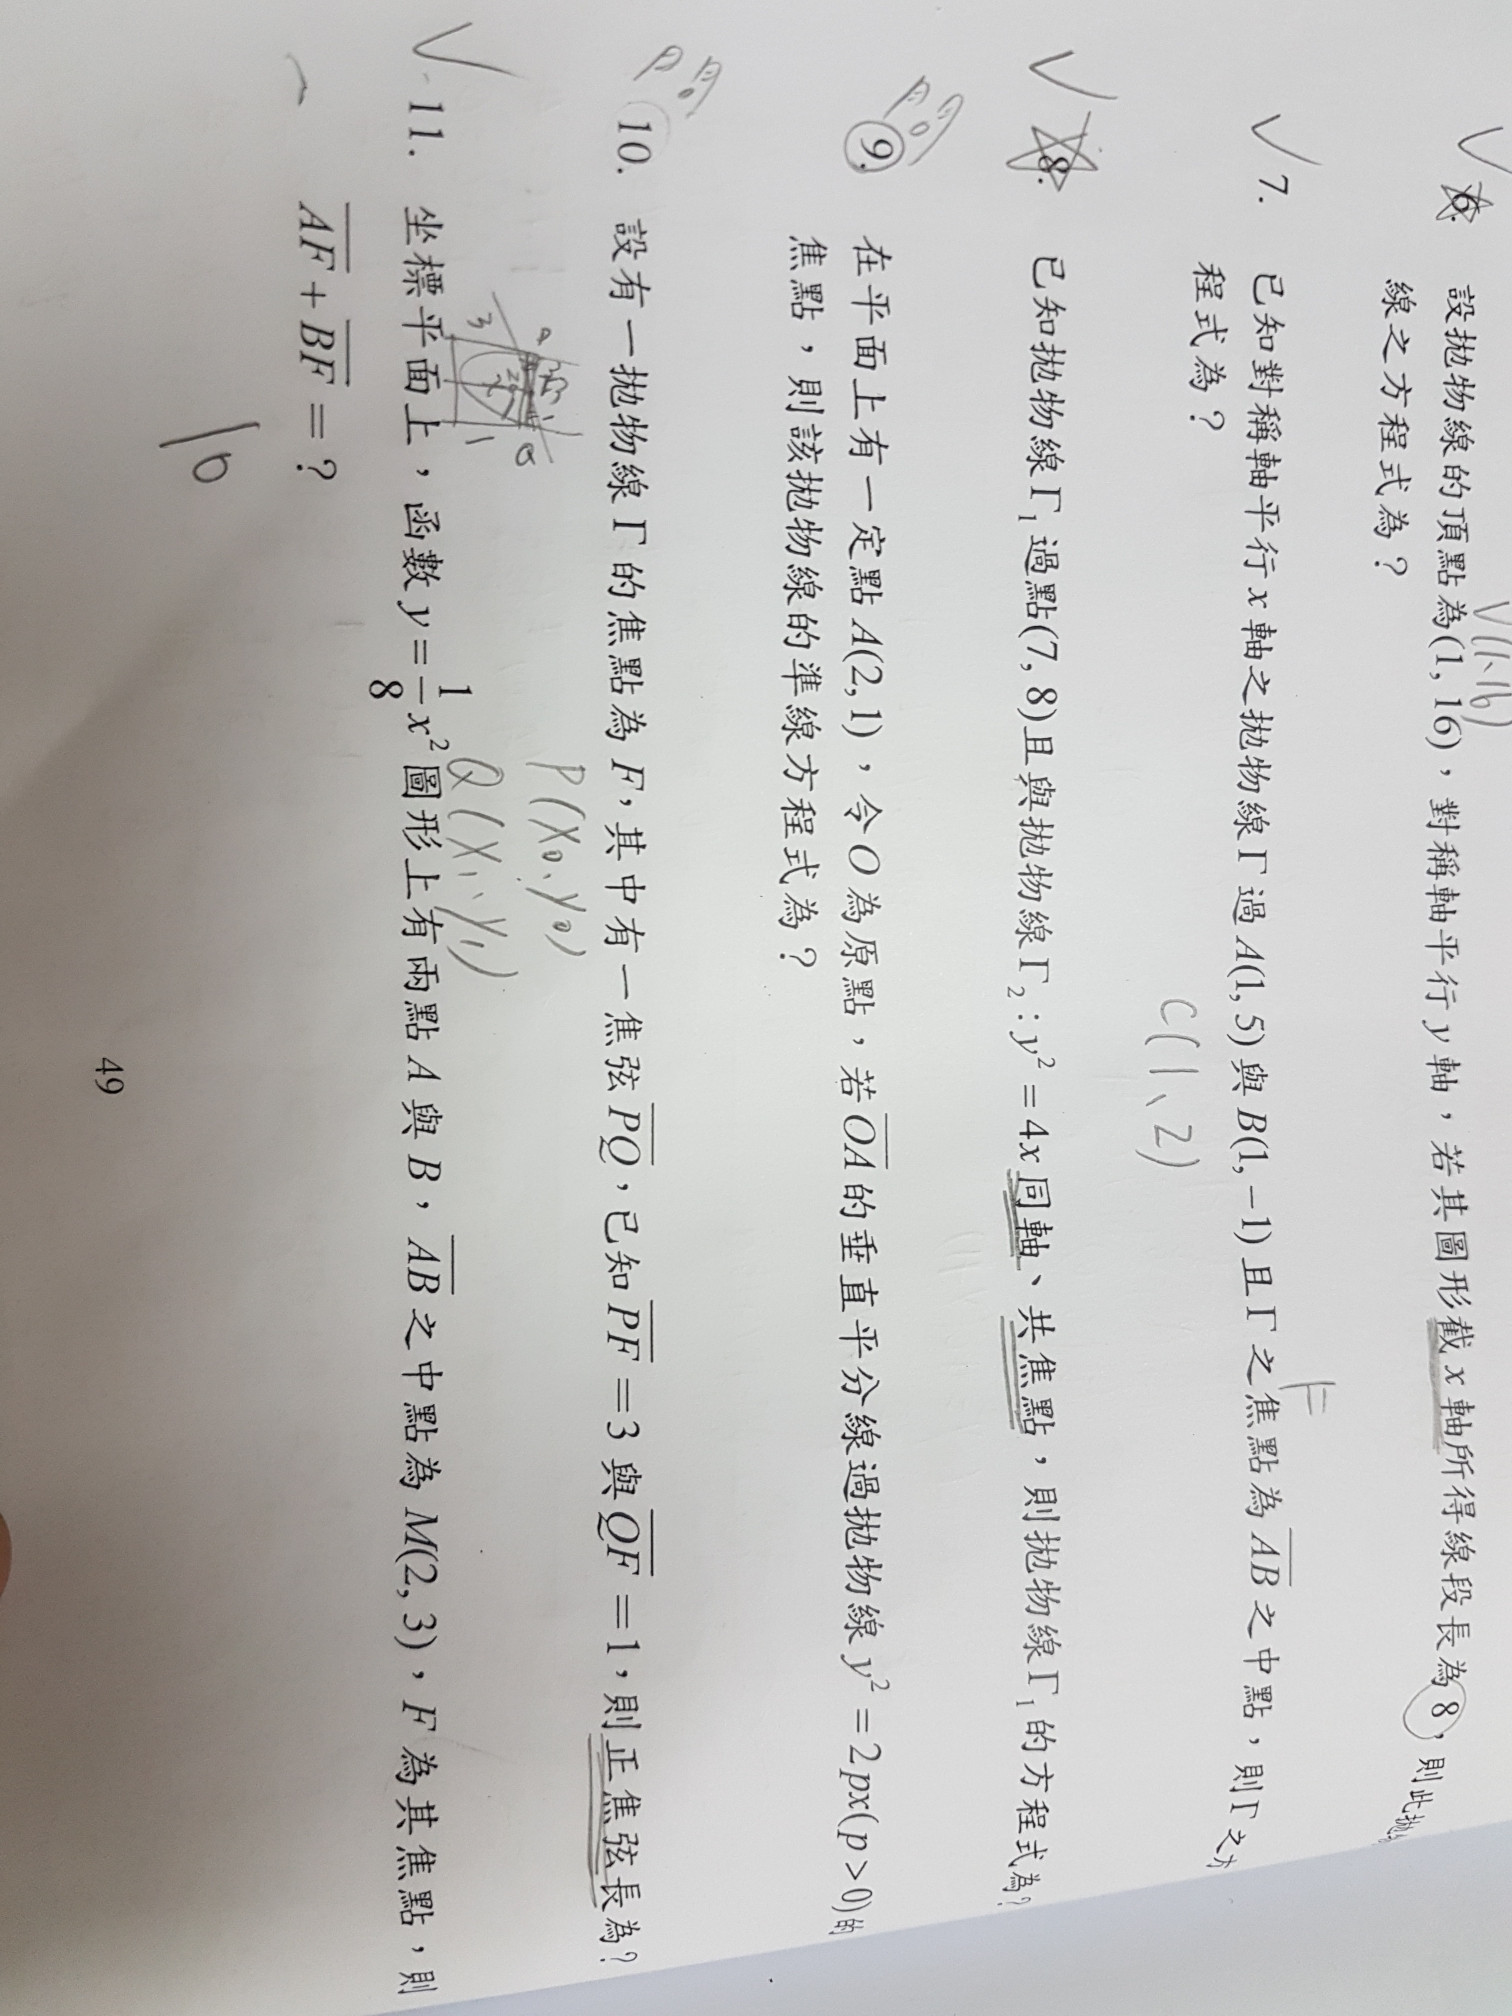 V(1、16)
6. 設拋物線的頂點為(1, 16)，對稱軸平行 y 軸，若其圖形截 x 軸所得線段長為 8，則此拋
線之方程式為？
F
7. 已知對稱軸平行 x 軸之拋物線 Γ 過 A(1, 5) 與 B(1, −1) 且 Γ 之焦點為 \overline{AB} 之中點，則 Γ 之方
程式為？
C(1、2)
8. 已知拋物線 Γ₁ 過點(7, 8)且與拋物線 Γ₂ : y² = 4x 同軸、共焦點，則拋物線 Γ₁ 的方程式為？
問
9. 在平面上有一定點 A(2, 1)，令 O 為原點，若 \overline{OA} 的垂直平分線過拋物線 y² = 2px(p > 0) 的
焦點，則該拋物線的準線方程式為？
問
10. 設有一拋物線 Γ 的焦點為 F，其中有一焦弦 \overline{PQ}，已知 \overline{PF} = 3 與 \overline{QF} = 1，則正焦弦長為？
P(x₀、y₀)
Q(x₁、y₁)
3
1
11. 坐標平面上，函數 y = \frac{1}{8}x² 圖形上有兩點 A 與 B，\overline{AB} 之中點為 M(2, 3)，F 為其焦點，則
\overline{AF} + \overline{BF} = ?
10
49